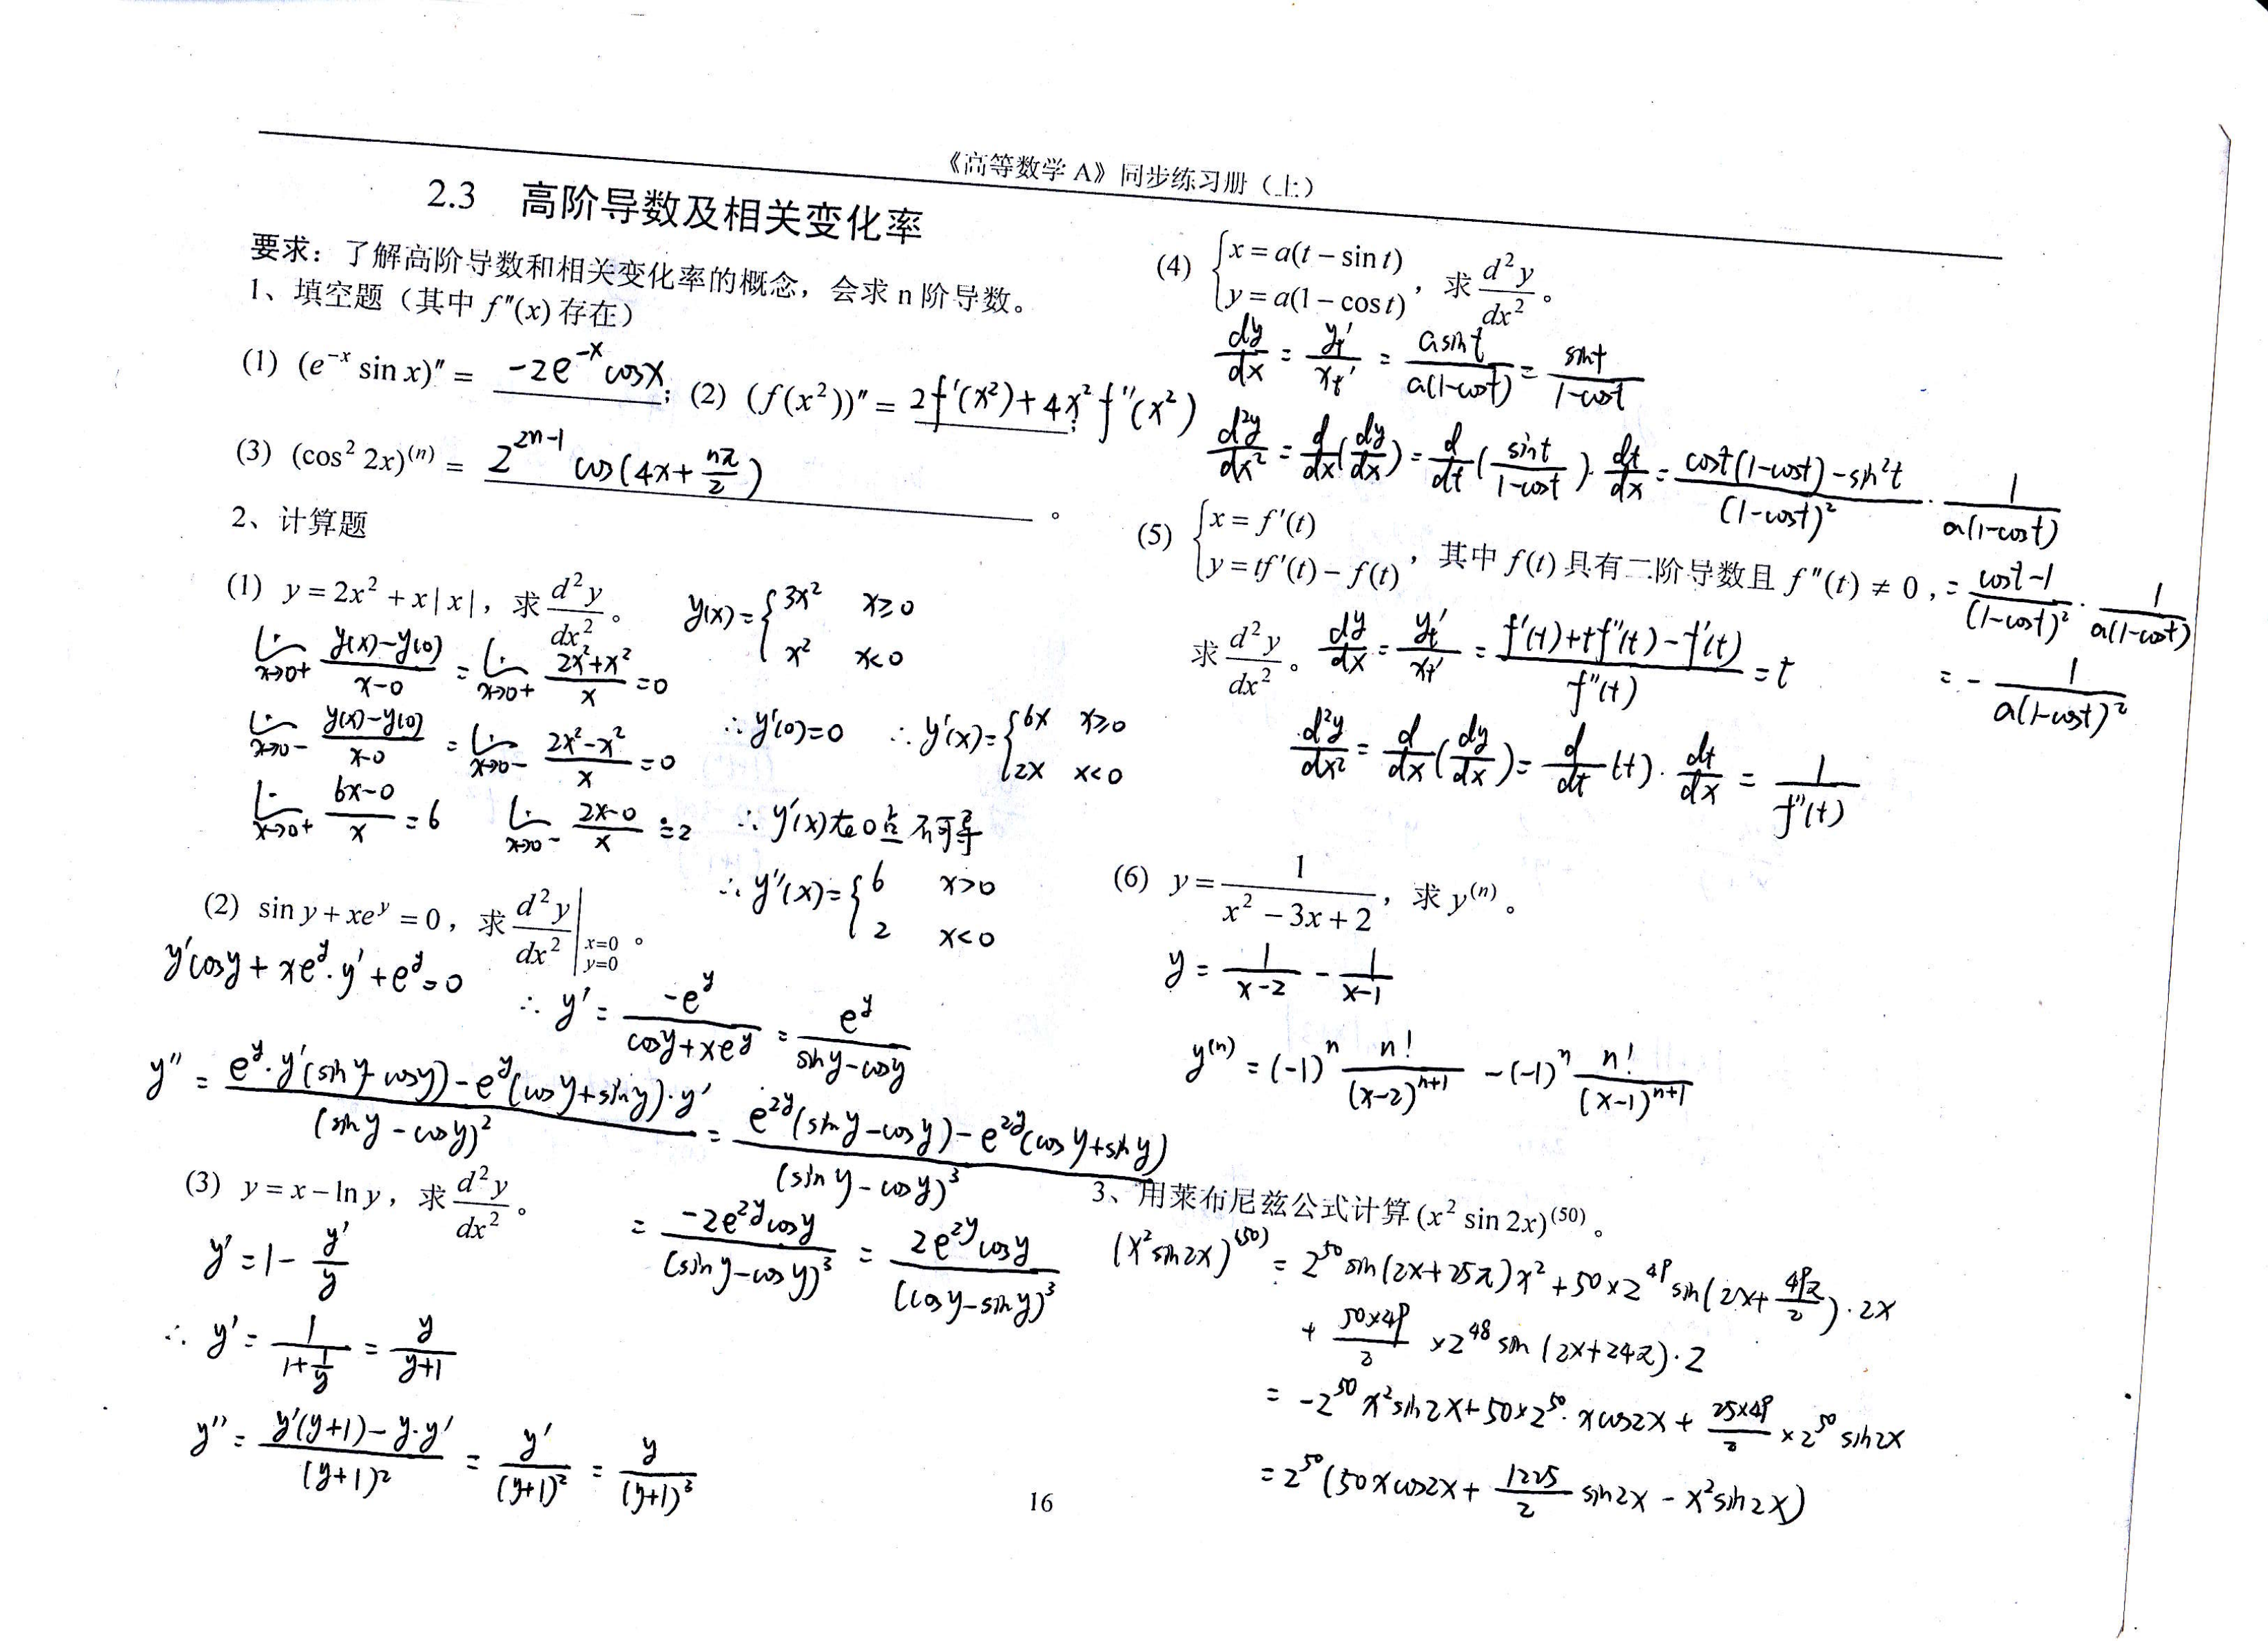 《高等数学 A》同步练习册（上）
2.3 高阶导数及相关变化率
要求：了解高阶导数和相关变化率的概念，会求 n 阶导数。
1、填空题（其中 f″(x) 存在）
(1) (e^{-x} sin x)″ = -2e^{-x}cosx ; (2) (f(x²))″ = 2f′(x²)+4x²f″(x²) ;
(3) (cos² 2x)^{(n)} = 2^{2n-1} cos(4x+\frac{nπ}{2}) 。
2、计算题
(1) y = 2x² + x|x|，求 \frac{d²y}{dx²}。 y(x)= { 3x² x≥0
x² x<0
\lim_{x→0+} \frac{y(x)-y(0)}{x-0} = \lim_{x→0+} \frac{2x²+x²}{x} =0
\lim_{x→0-} \frac{y(x)-y(0)}{x-0} = \lim_{x→0-} \frac{2x²-x²}{x} =0 ∴y′(0)=0 ∴y′(x)= { 6x x≥0
2x x<0
\lim_{x→0+} \frac{6x-0}{x} =6 \lim_{x→0-} \frac{2x-0}{x} =2 ∴y′(x)在0点不可导
∴y″(x)= { 6 x>0
2 x<0
(2) sin y + xe^y = 0，求 \frac{d²y}{dx²}|_{x=0, y=0}。
y′cosy+xe^y·y′+e^y=0
∴ y′= \frac{-e^y}{cosy+xe^y} = \frac{e^y}{siny-cosy}
y″ = \frac{e^y·y′(siny-cosy)-e^y(cosy+siny)·y′}{(siny-cosy)²} = \frac{e^{2y}(siny-cosy)-e^{2y}(cosy+siny)}{(siny-cosy)³}
= \frac{-2e^{2y}cosy}{(siny-cosy)³} = \frac{2e^{2y}cosy}{(cosy-siny)³}
(3) y = x − ln y，求 \frac{d²y}{dx²}。
y′=1-\frac{y′}{y}
∴ y′= \frac{1}{1+\frac{1}{y}} = \frac{y}{y+1}
y″= \frac{y′(y+1)-y·y′}{(y+1)²} = \frac{y′}{(y+1)²} = \frac{y}{(y+1)³}
(4) { x = a(t − sin t)
y = a(1 − cos t) ，求 \frac{d²y}{dx²}。
\frac{dy}{dx} = \frac{y_t′}{x_t′} = \frac{asint}{a(1-cost)} = \frac{sint}{1-cost}
\frac{d²y}{dx²} = \frac{d}{dx}(\frac{dy}{dx}) = \frac{d}{dt}(\frac{sint}{1-cost})·\frac{dt}{dx} = \frac{cost(1-cost)-sin²t}{(1-cost)²}·\frac{1}{a(1-cost)}
= \frac{cost-1}{(1-cost)²}·\frac{1}{a(1-cost)}
= -\frac{1}{a(1-cost)²}
(5) { x = f′(t)
y = tf′(t) − f(t) ，其中 f(t) 具有二阶导数且 f″(t) ≠ 0，
求 \frac{d²y}{dx²}。 \frac{dy}{dx} = \frac{y_t′}{x_t′} = \frac{f′(t)+tf″(t)-f′(t)}{f″(t)} =t
\frac{d²y}{dx²} = \frac{d}{dx}(\frac{dy}{dx}) = \frac{d}{dt}(t)·\frac{dt}{dx} = \frac{1}{f″(t)}
(6) y = \frac{1}{x² − 3x + 2}，求 y^{(n)}。
y = \frac{1}{x-2} - \frac{1}{x-1}
y^{(n)} = (-1)^n \frac{n!}{(x-2)^{n+1}} -(-1)^n \frac{n!}{(x-1)^{n+1}}
3、用莱布尼兹公式计算 (x² sin 2x)^{(50)}。
(x²sin2x)^{(50)} = 2^{50}sin(2x+25π)x²+50×2^{49}sin(2x+\frac{49π}{2})·2x
+ \frac{50×49}{2} ×2^{48}sin(2x+24π)·2
= -2^{50}x²sin2x+50×2^{50}·xcos2x+\frac{25×49}{2}×2^{50}sin2x
=2^{50}(50xcos2x+\frac{1225}{2}sin2x-x²sin2x)
16